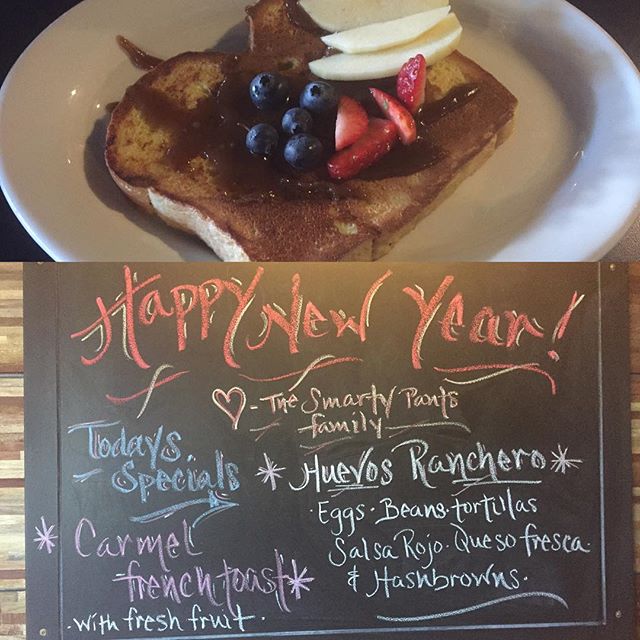 Happy New Year!
- The Smarty Pants
family
Todays
Specials
* Huevos Ranchero *
· Eggs · Beans · tortillas
Salsa Rojo · Queso fresca ·
& Hashbrowns ·
* Carmel
french toast *
· with fresh fruit ·